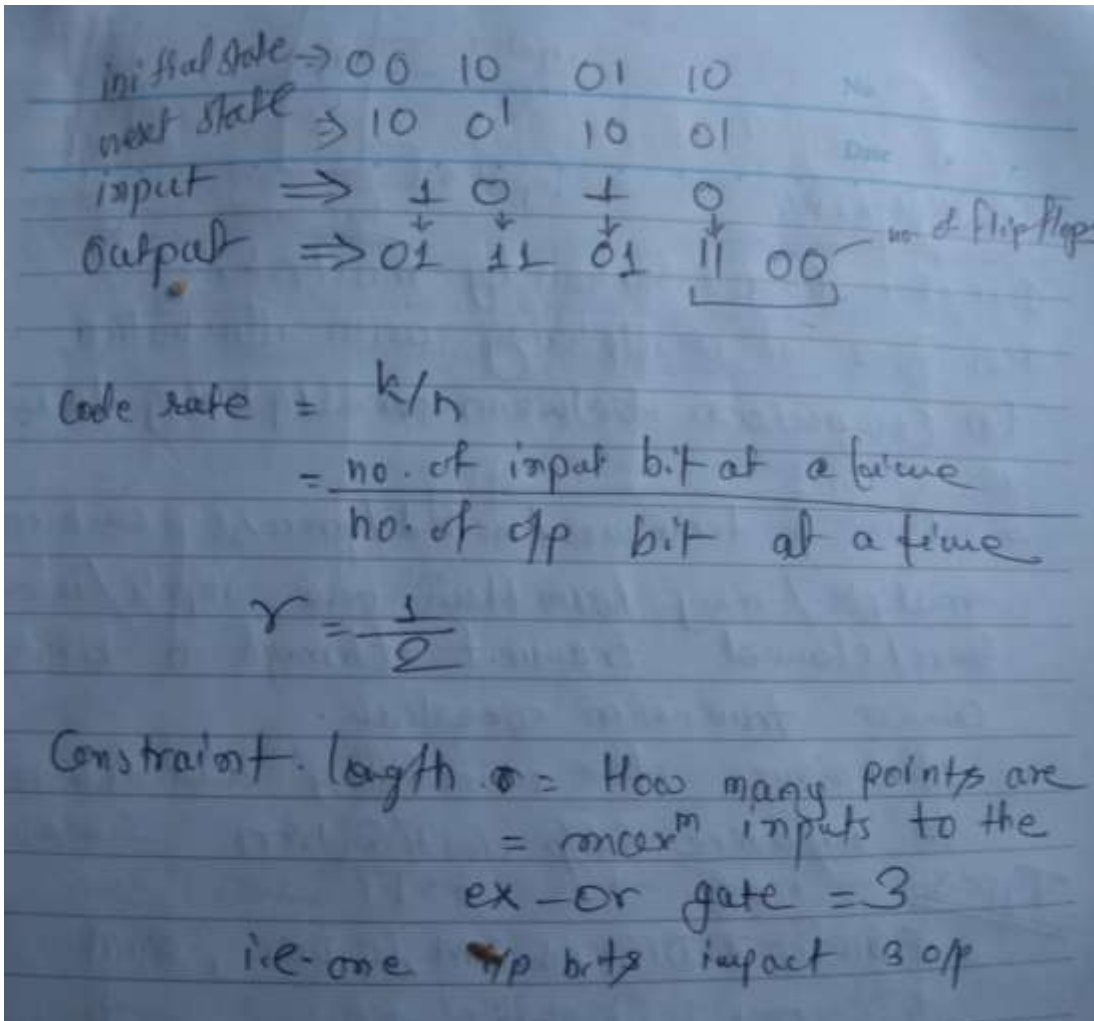 initial state → 00 10 01 10
next state ⇒ 10 01 10 01
input ⇒ 1 0 1 0
Output ⇒ 01 11 01 11 00 no. of flip flops
No.
Date
Code rate = k/n
= no. of input bit at a time
no. of o/p bit at a time
r = 1
2
Constraint length = How many points are
= maxᵐ inputs to the
ex-or gate = 3
i.e. one i/p bits impact 3 o/p